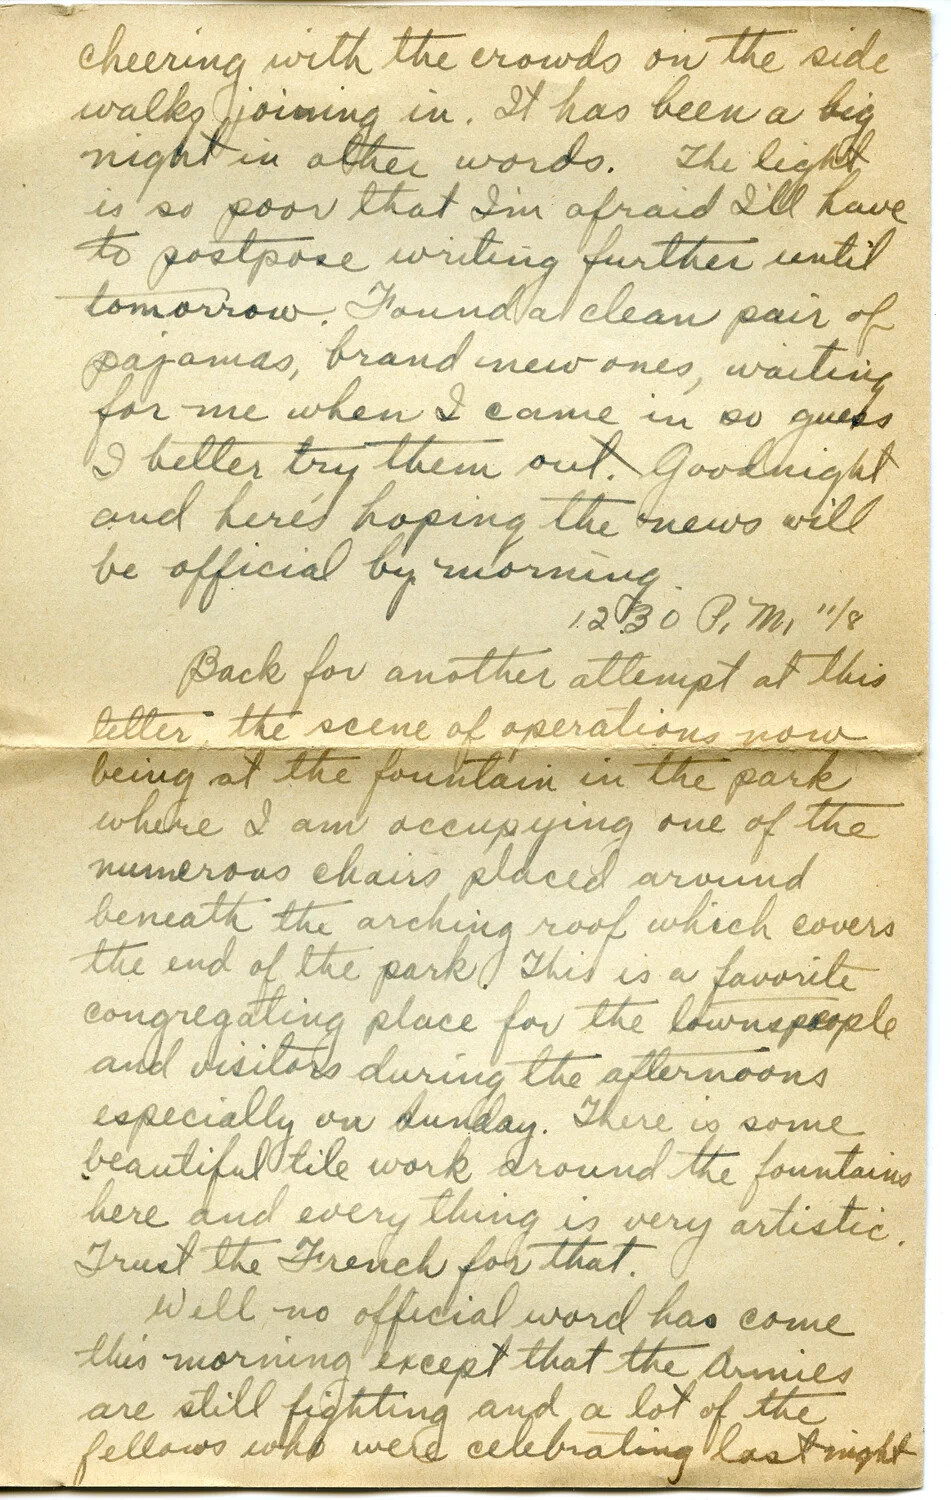 cheering with the crowds on the side
walks joining in. It has been a big
night in other words. The light
is so poor that I'm afraid I'll have
to postpose writing further until
tomorrow. Found a clean pair of
pajamas, brand new ones, waiting
for me when I came in so guess
I better try them out. Goodnight
and here's hoping the news will
be official by morning.
12.30 P.M. 11/8
Back for another attempt at this
letter, the scene of operations now
being at the fountain in the park
where I am occupying one of the
numerous chairs placed around
beneath the arching roof which covers
the end of the park. This is a favorite
congregating place for the townspeople
and visitors during the afternoons
especially on Sunday. There is some
beautiful tile work around the fountains
here and everything is very artistic.
Trust the French for that.
Well no official word has come
this morning except that the Armies
are still fighting and a lot of the
fellows who were celebrating last night